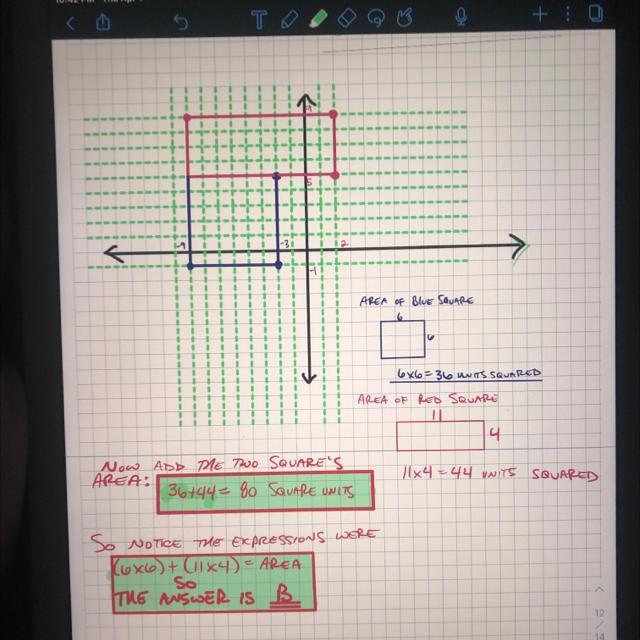 T
9
5
-9
-3
2
-1
AREA OF BLUE SQUARE
6
6
6x6=36 UNITS SQUARED
AREA OF RED SQUARE
11
4
11x4=44 UNITS SQUARED
NOW ADD THE TWO SQUARE'S
AREA:
36+44= 80 SQUARE UNITS
SO NOTICE THE EXPRESSIONS WERE
(6x6)+(11x4)=AREA
SO
THE ANSWER IS B
12
/
14